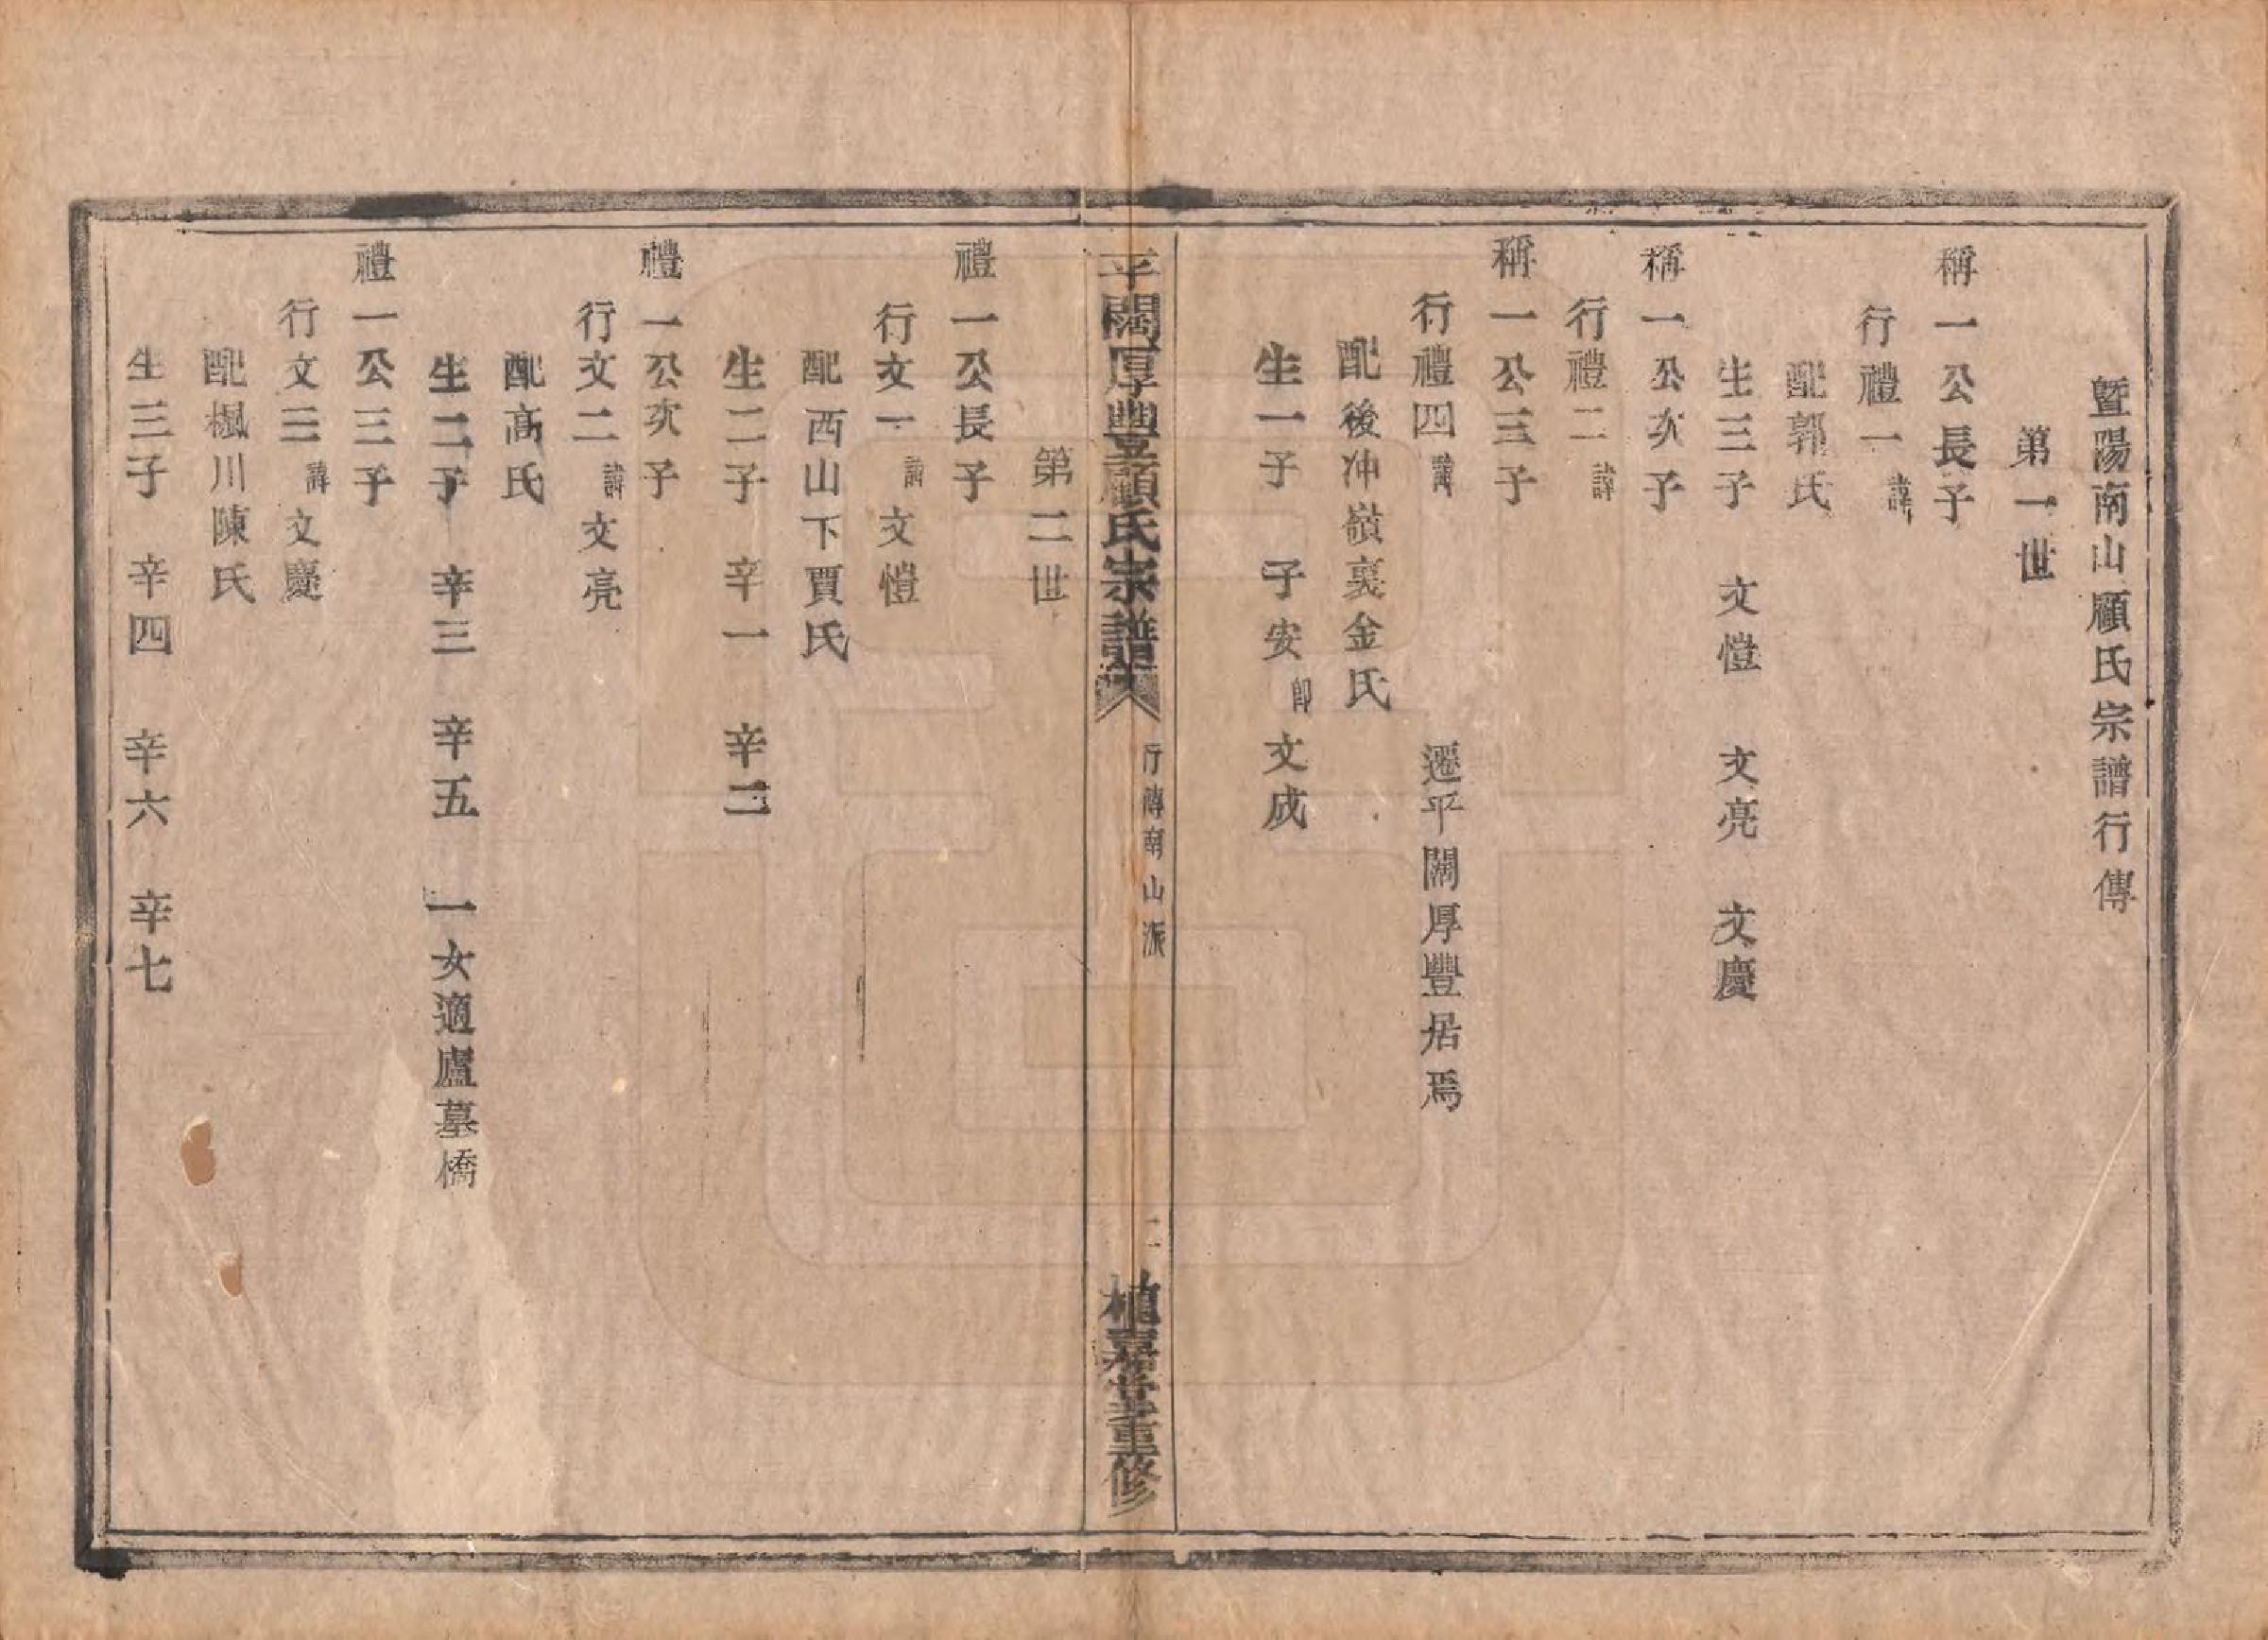 暨陽南山顧氏宗譜行傳
第一世
稱一公長子
行禮一諱
配郭氏
生三子　文愷　文亮　文慶
稱一公次子
行禮二諱
稱一公三子
行禮四諱　遷平闊厚豐居焉
配後冲嶺裏金氏
生一子　子安卽文成
平闊厚豐顧氏宗譜　行傳南山派　二　植嘉堂重修
第二世
禮一公長子
行文一諱文愷
配西山下賈氏
生二子　辛一　辛二
禮一公次子
行文二諱文亮
配高氏
生二子　辛三　辛五　一女適廬墓橋
禮一公三子
行文三諱文慶
配楓川陳氏
生三子　辛四　辛六　辛七